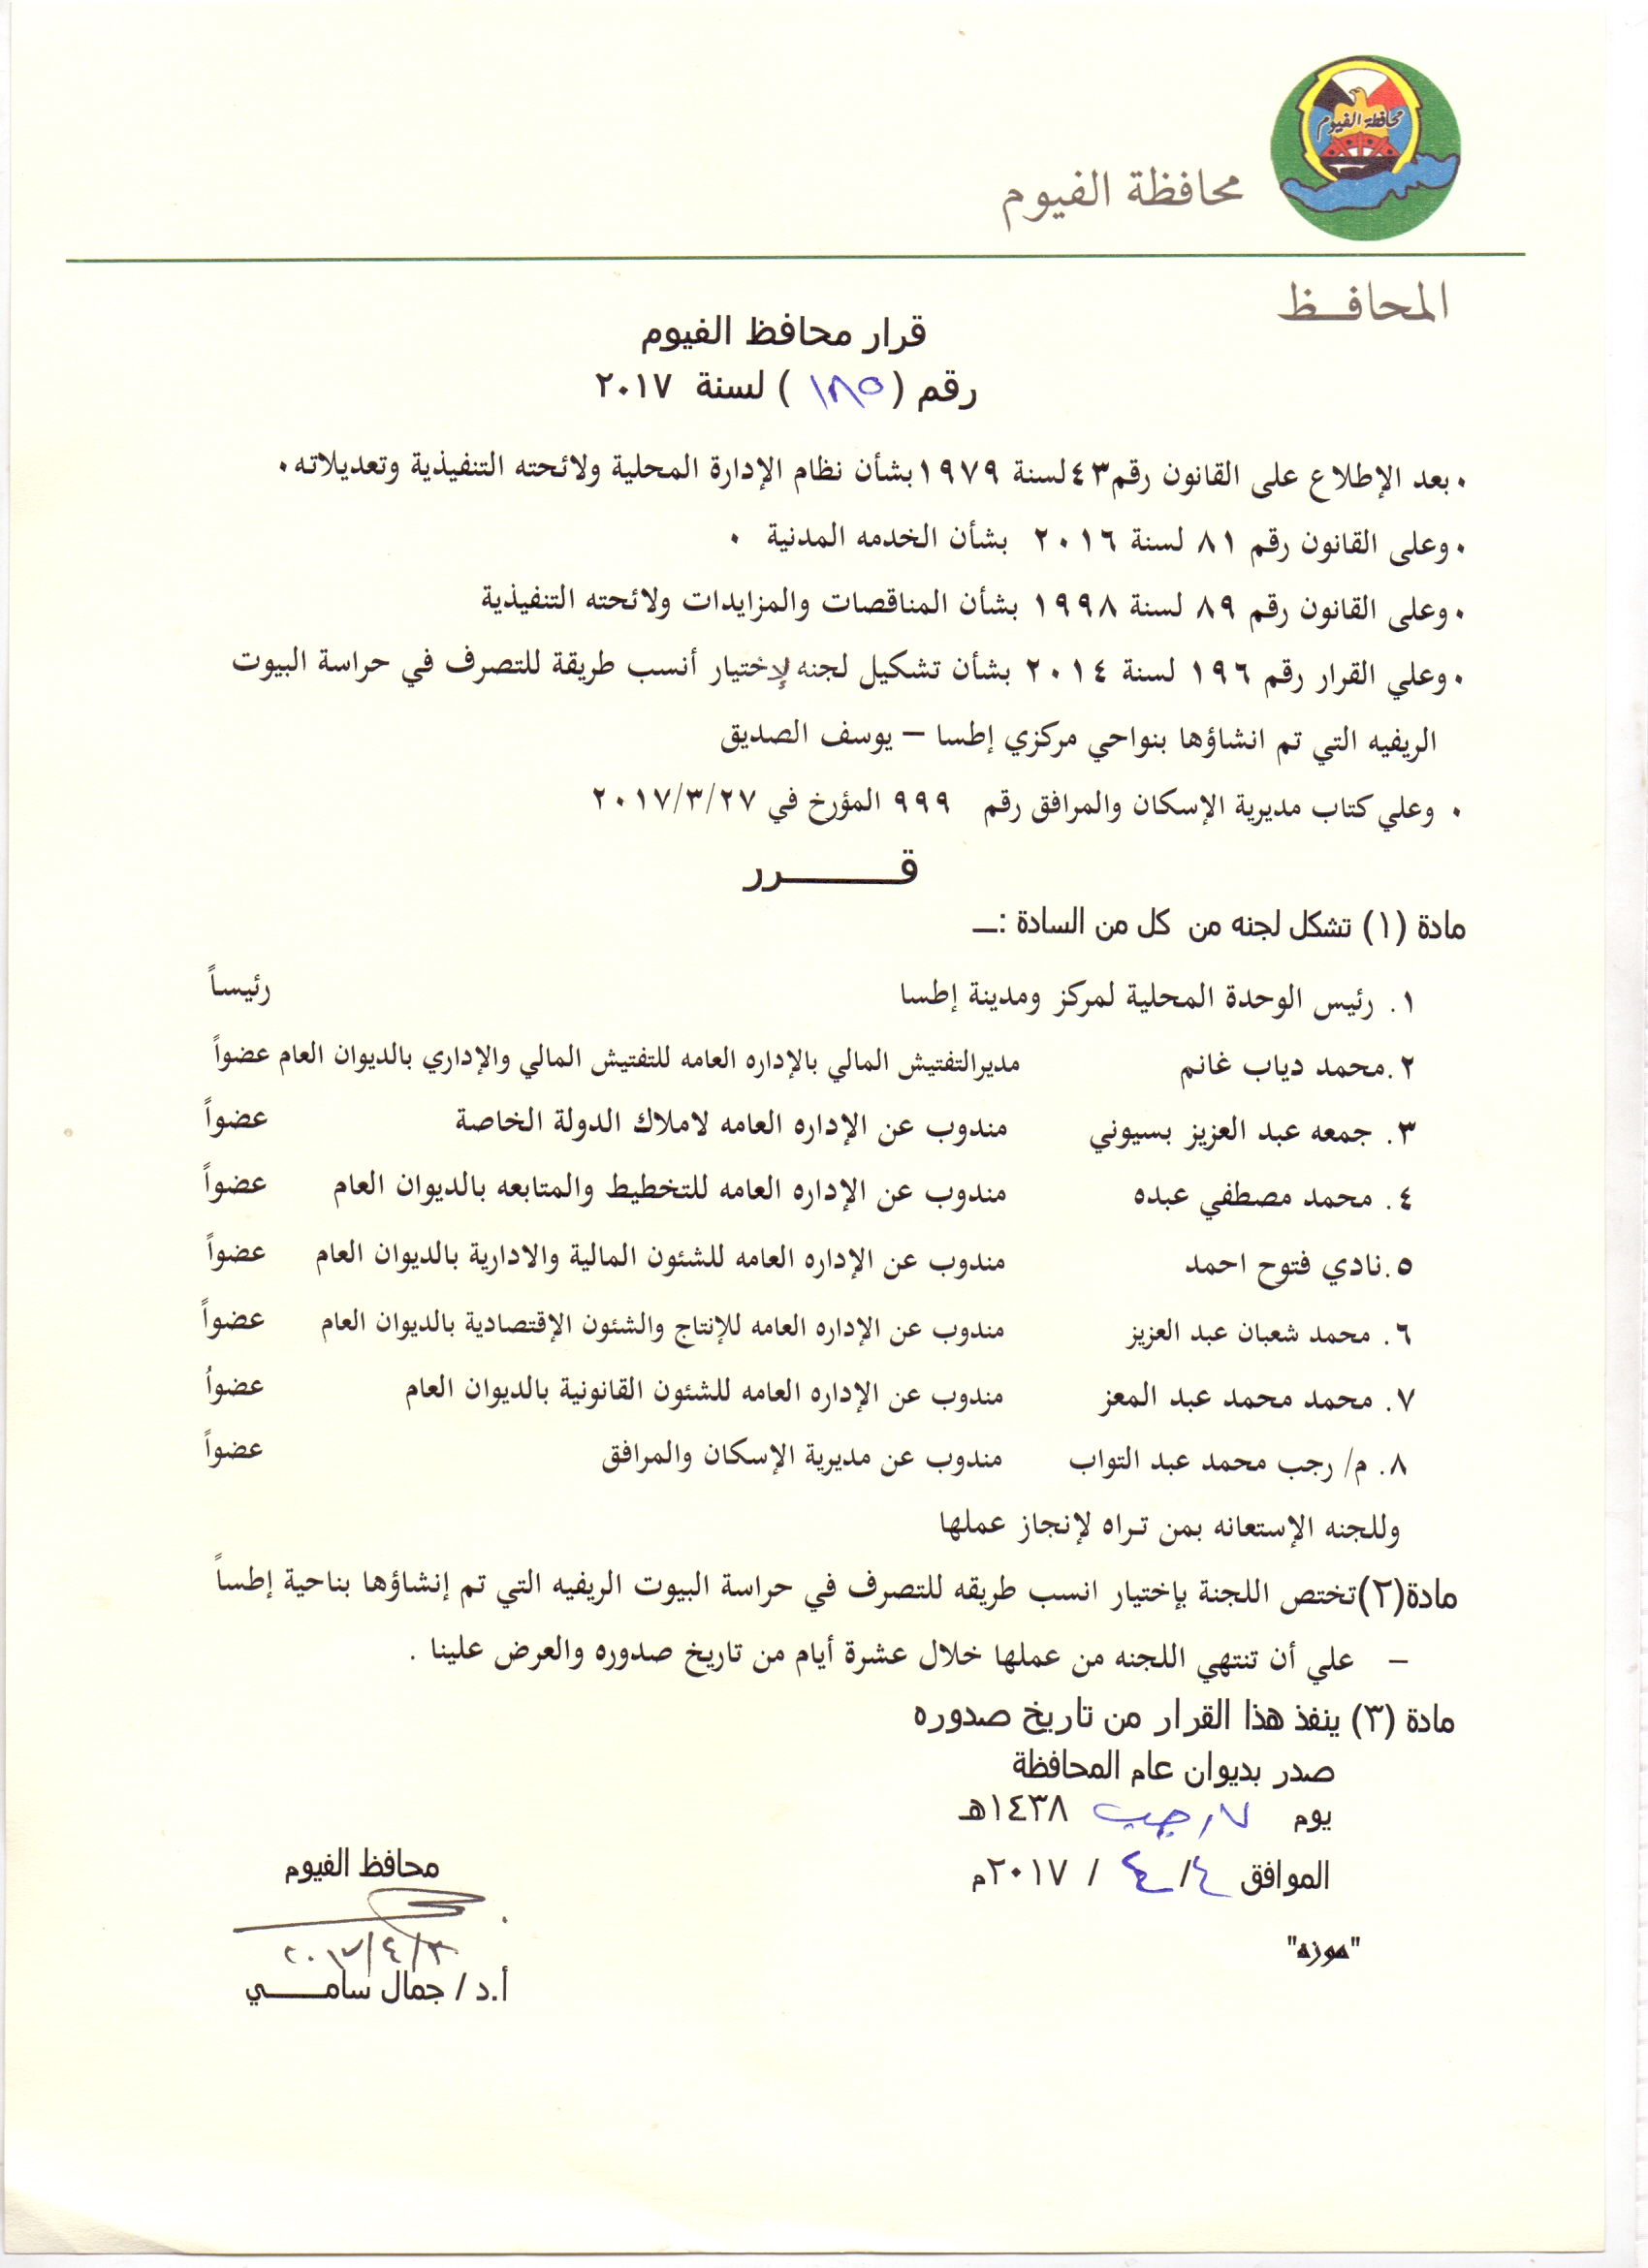 محافظة الفيوم
محافظة الفيوم
المحافــظ
قرار محافظ الفيوم
رقم ( ١٨٥ ) لسنة ٢٠١٧
٠ بعد الإطلاع على القانون رقم٤٣لسنة ١٩٧٩بشأن نظام الإدارة المحلية ولائحته التنفيذية وتعديلاته٠
٠ وعلى القانون رقم ٨١ لسنة ٢٠١٦ بشأن الخدمه المدنية ٠
٠ وعلى القانون رقم ٨٩ لسنة ١٩٩٨ بشأن المناقصات والمزايدات ولائحته التنفيذية
٠ وعلي القرار رقم ١٩٦ لسنة ٢٠١٤ بشأن تشكيل لجنه لإختيار أنسب طريقة للتصرف في حراسة البيوت
الريفيه التي تم انشاؤها بنواحي مركزي إطسا – يوسف الصديق
٠ وعلي كتاب مديرية الإسكان والمرافق رقم ٩٩٩ المؤرخ في ٢٠١٧/٣/٢٧
قـــــــرر
مادة (١) تشكل لجنه من كل من السادة :ــ
١. رئيس الوحدة المحلية لمركز ومدينة إطسا رئيساً
٢.محمد دياب غانم مديرالتفتيش المالي بالإداره العامه للتفتيش المالي والإداري بالديوان العام عضواً
٣. جمعه عبد العزيز بسيوني مندوب عن الإداره العامه لاملاك الدولة الخاصة عضواً
٤. محمد مصطفي عبده مندوب عن الإداره العامه للتخطيط والمتابعه بالديوان العام عضواً
٥.نادي فتوح احمد مندوب عن الإداره العامه للشئون المالية والادارية بالديوان العام عضواً
٦. محمد شعبان عبد العزيز مندوب عن الإداره العامه للإنتاج والشئون الإقتصادية بالديوان العام عضواً
٧. محمد محمد عبد المعز مندوب عن الإداره العامه للشئون القانونية بالديوان العام عضواُ
٨. م/ رجب محمد عبد التواب مندوب عن مديرية الإسكان والمرافق عضواً
وللجنه الإستعانه بمن تراه لإنجاز عملها
مادة(٢)تختص اللجنة بإختيار انسب طريقه للتصرف في حراسة البيوت الريفيه التي تم إنشاؤها بناحية إطساً
– علي أن تنتهي اللجنه من عملها خلال عشرة أيام من تاريخ صدوره والعرض علينا .
مادة (٣) ينفذ هذا القرار من تاريخ صدوره
صدر بديوان عام المحافظة
يوم ٧ رجب ١٤٣٨هـ
الموافق ٤/ ٤ / ٢٠١٧م
محافظ الفيوم
٢٠١٧/٤/٣
أ.د / جمال سامـــــي
"موزه"